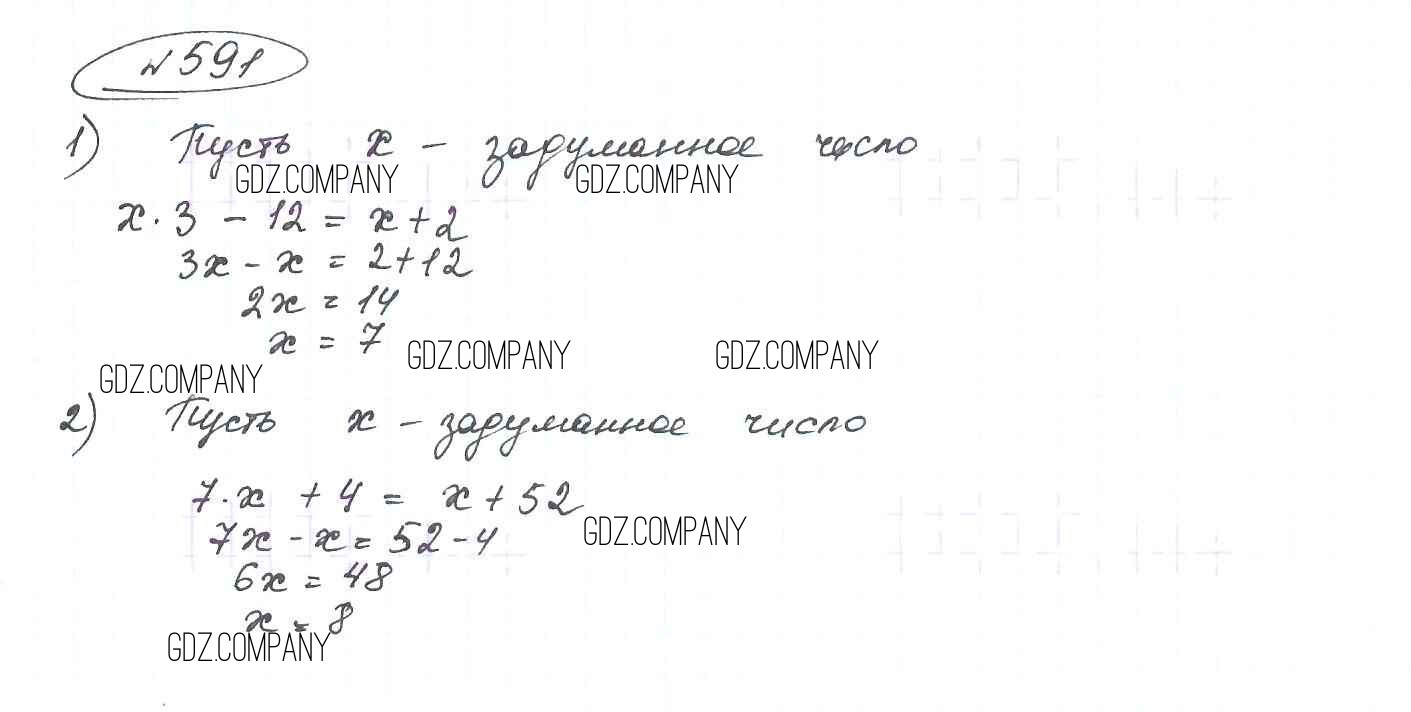 №591
1) Пусть x - задуманное число
GDZ.COMPANY GDZ.COMPANY
x·3 - 12 = x+2
3x - x = 2+12
2x = 14
x = 7
GDZ.COMPANY GDZ.COMPANY
GDZ.COMPANY
2) Пусть x - задуманное число
7·x + 4 = x + 52
GDZ.COMPANY
7x - x = 52-4
6x = 48
x = 8
GDZ.COMPANY